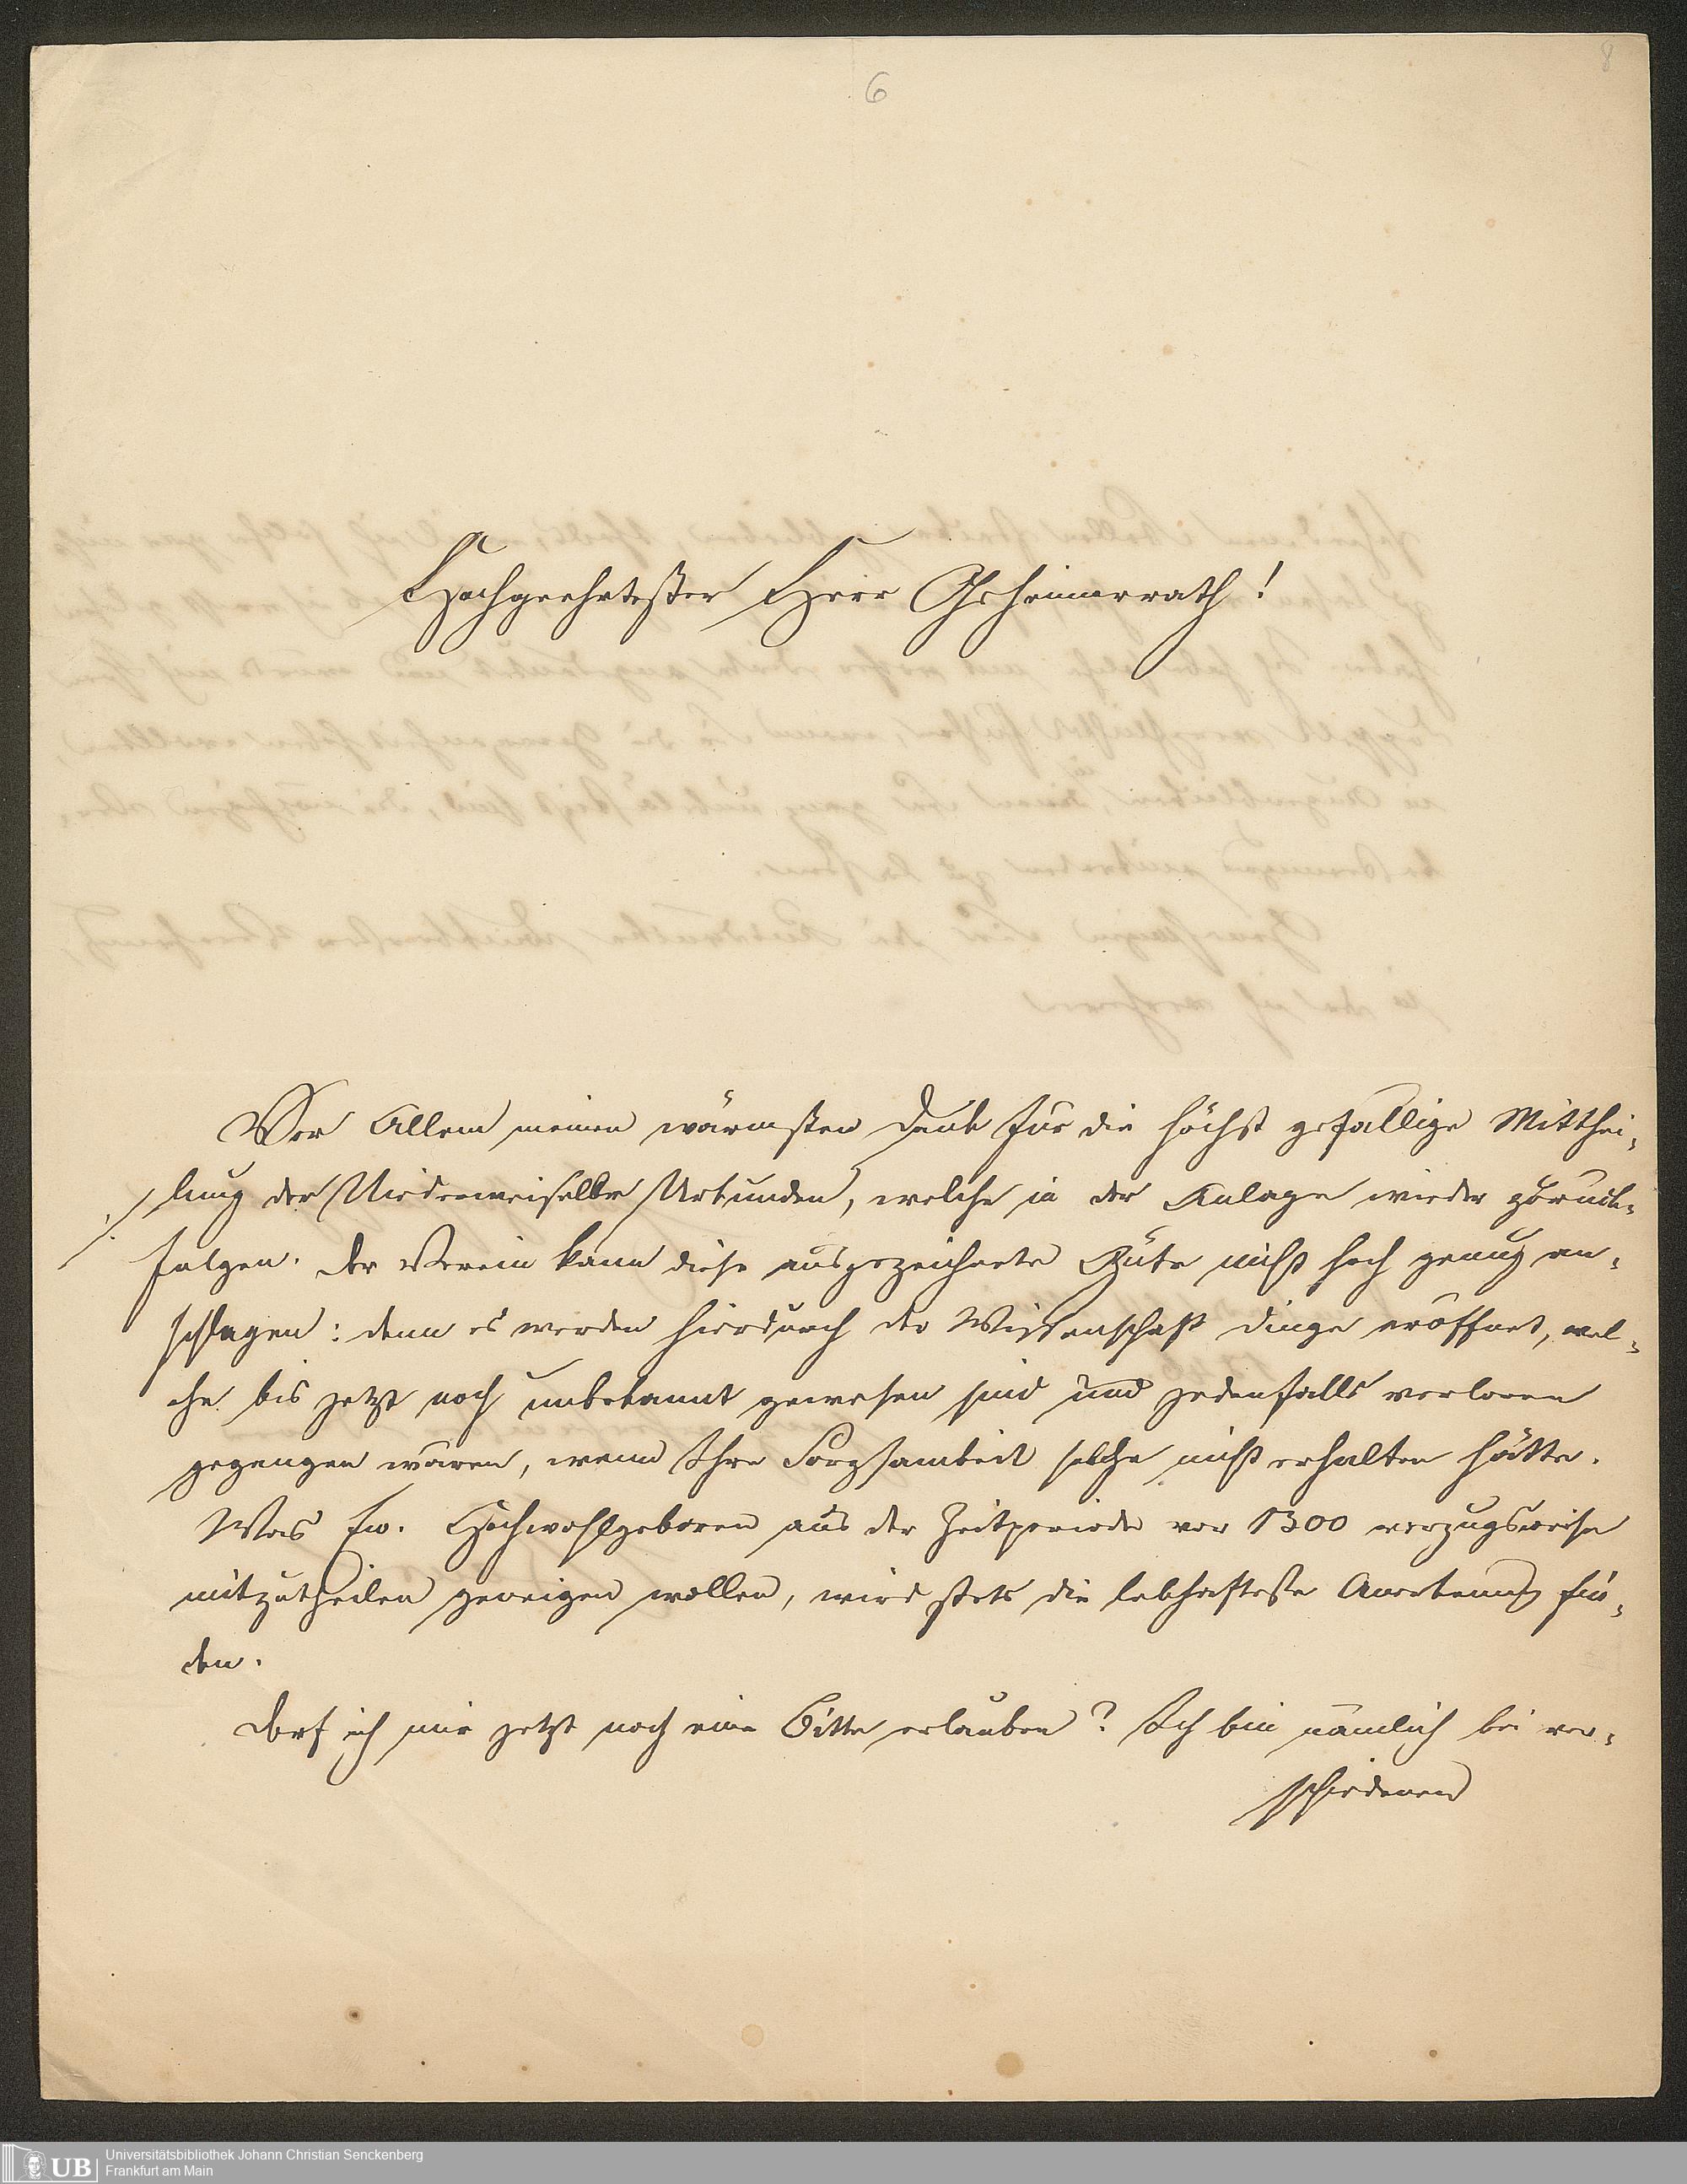 6
8
Hochgeehrtester Herr Geheimerrath!
Vor Allem meinen wärmsten Dank für die höchst gefällige Mitthei-
lung der Niederweiselber Urkunden, welche in der Anlage wieder zurück-
folgen. Der Verein kann diese ausgezeichnete Güte nicht hoch genug an-
schlagen: denn es werden hierdurch der Wissenschaft Dinge eröffnet, wel-
che bis jetzt noch unbekannt gewesen sind und jedenfalls verloren
gegangen wären, wenn Ihre Sorgsamkeit solche nicht erhalten hätte.
Was Ew. Hochwohlgeboren aus der Zeitperiode vor 1300 vorzugsweise
mitzutheilen geneigen wollen, wird stets die lebhafteste Anerkennung fin-
den.
Darf ich mir jetzt noch eine Bitte erlauben? Ich bin nämlich bei ver-
schiedenen
UB Universitätsbibliothek Johann Christian Senckenberg
Frankfurt am Main